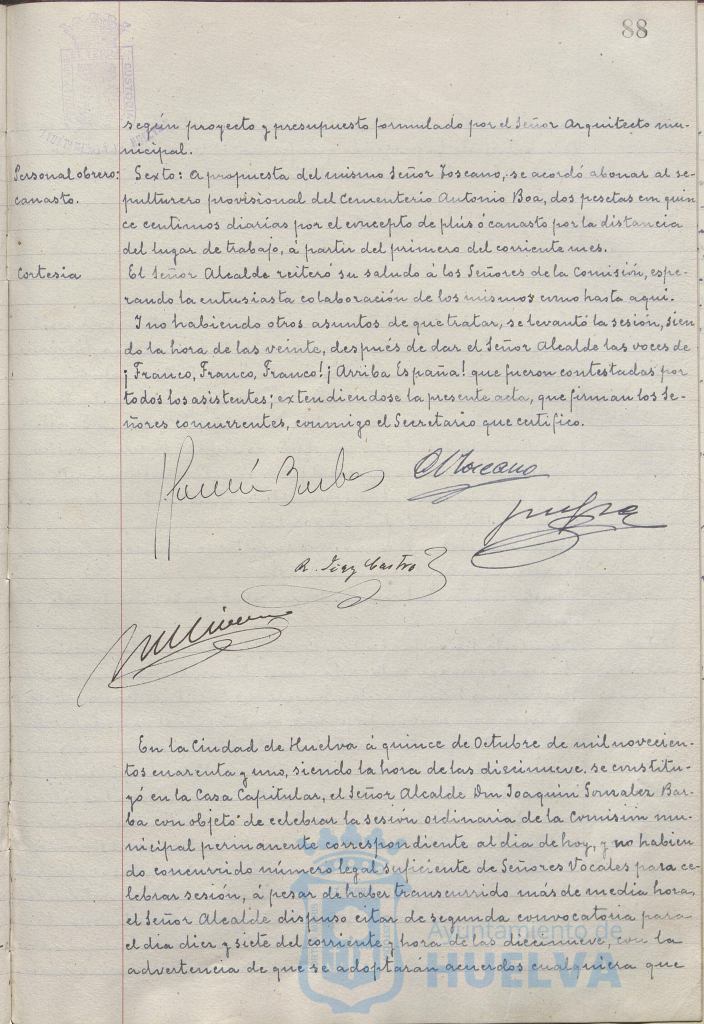 88
según proyecto y presupuesto formulado por el Señor Arquitecto mu-
nicipal.
Personal obrero:
canasto.
Sexto: A propuesta del mismo Señor Toscano, se acordó abonar al se-
pulturero provisional del Cementerio Antonio Boa, dos pesetas con quin
ce centimos diarias por el concepto de plús ó canasto por la distancia
del lugar de trabajo, á partir del primero del corriente mes.
Cortesia
El Señor Alcalde reiteró su saludo á los Señores de la Comisión, espe-
rando la entusiasta colaboración de los mismos como hasta aqui.
Y no habiendo otros asuntos de que tratar, se levantó la sesión, sien
do la hora de las veinte, después de dar el Señor Alcalde las voces de
¡Franco, Franco, Franco! ¡Arriba España! que fueron contestadas por
todos los asistentes; extendiendose la presente acta, que firman los Se-
ñores concurrentes, conmigo el Secretario que certifico.
Toscano
R. Diaz Castro
En la Ciudad de Huelva á quince de Octubre de mil novecien-
tos cuarenta y uno, siendo la hora de las diecinueve, se constitu-
yó en la Casa Capitular, el Señor Alcalde Don Joaquin Gonzalez Bar-
ba con objeto de celebrar la sesión ordinaria de la Comisión mu-
nicipal permanente correspondiente al dia de hoy, y no habien
do concurrido número legal suficiente de Señores Vocales para ce-
lebrar sesión, á pesar de haber transcurrido más de media hora,
el Señor Alcalde dispuso citar de segunda convocatoria para
el dia diez y siete del corriente y hora de las diecinueve, con la
advertencia de que se adoptarán acuerdos cualquiera que
Ayuntamiento de
HUELVA